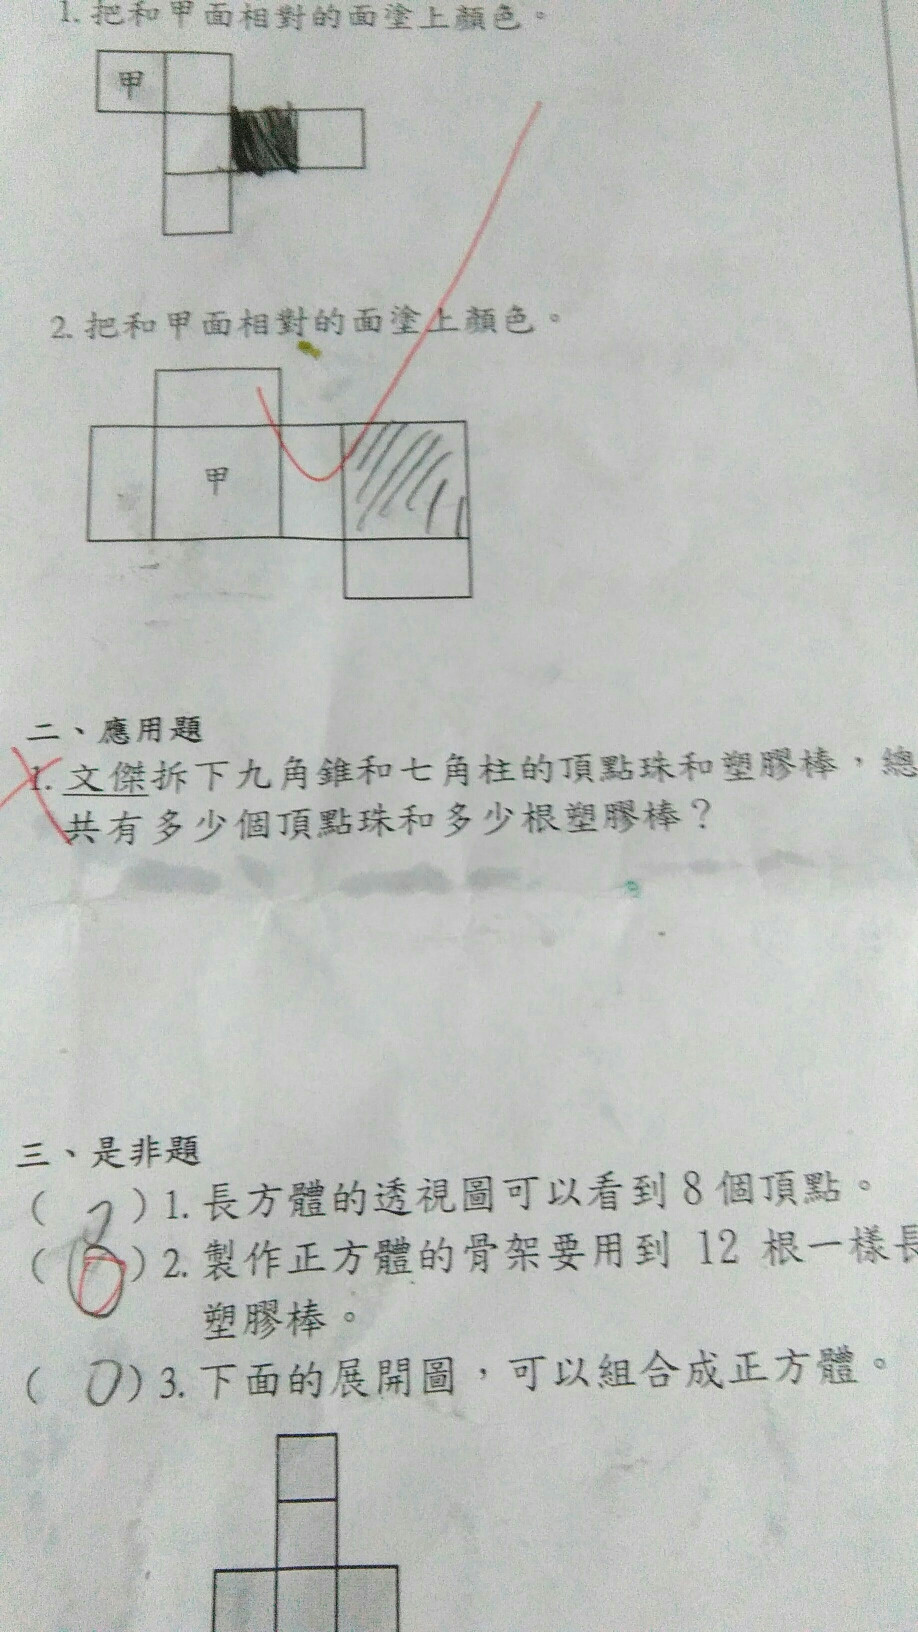 1. 把和甲面相對的面塗上顏色。
甲
2. 把和甲面相對的面塗上顏色。
甲
二、應用題
1. 文傑拆下九角錐和七角柱的頂點珠和塑膠棒，總
共有多少個頂點珠和多少根塑膠棒？
三、是非題
( ) 1. 長方體的透視圖可以看到 8 個頂點。
( ) 2. 製作正方體的骨架要用到 12 根一樣長
塑膠棒。
( O ) 3. 下面的展開圖，可以組合成正方體。